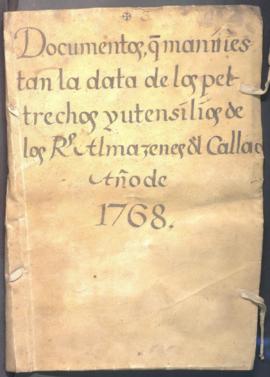 Documentos, q̃ manifies
tan la data de los pel
trechos y utensilios de
los R.s Almazenes dl Callao
Año de
1768.